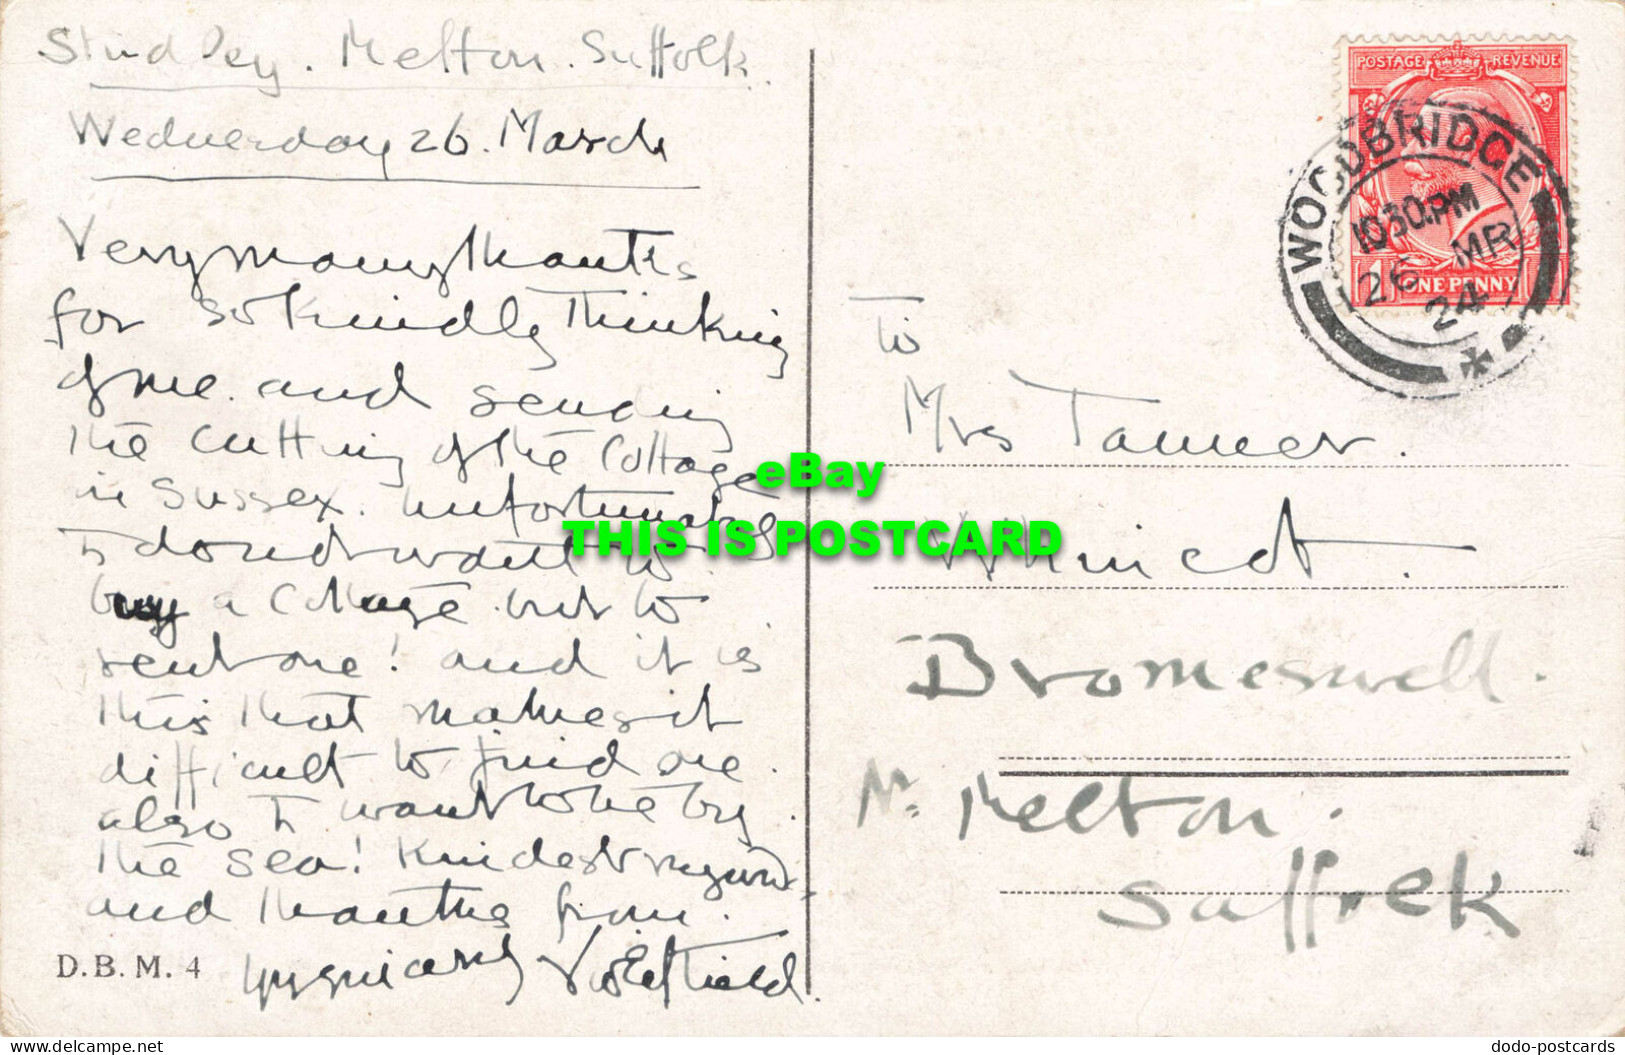 Studley. Melton. Suffolk.
Wednesday 26. March
Very many thanks
for so kindly thinking
of me and sending
the cutting of the Cottage
in Sussex. Unfortunately
I don't want to
buy a Cottage but to
rent one! and it is
this that makes it
difficult to find one.
also I want to be by
the sea! Kindest regards
and thanks from.
yrs sincerely Violet Field.
D.B.M. 4
POSTAGE REVENUE
ONE PENNY
WOODBRIDGE
10 30.PM
26 MR
24
To
Mrs Tanner.
Bromeswell.
Nr. Melton.
Suffolk
eBay
THIS IS POSTCARD
delcampe.net
dodo-postcards